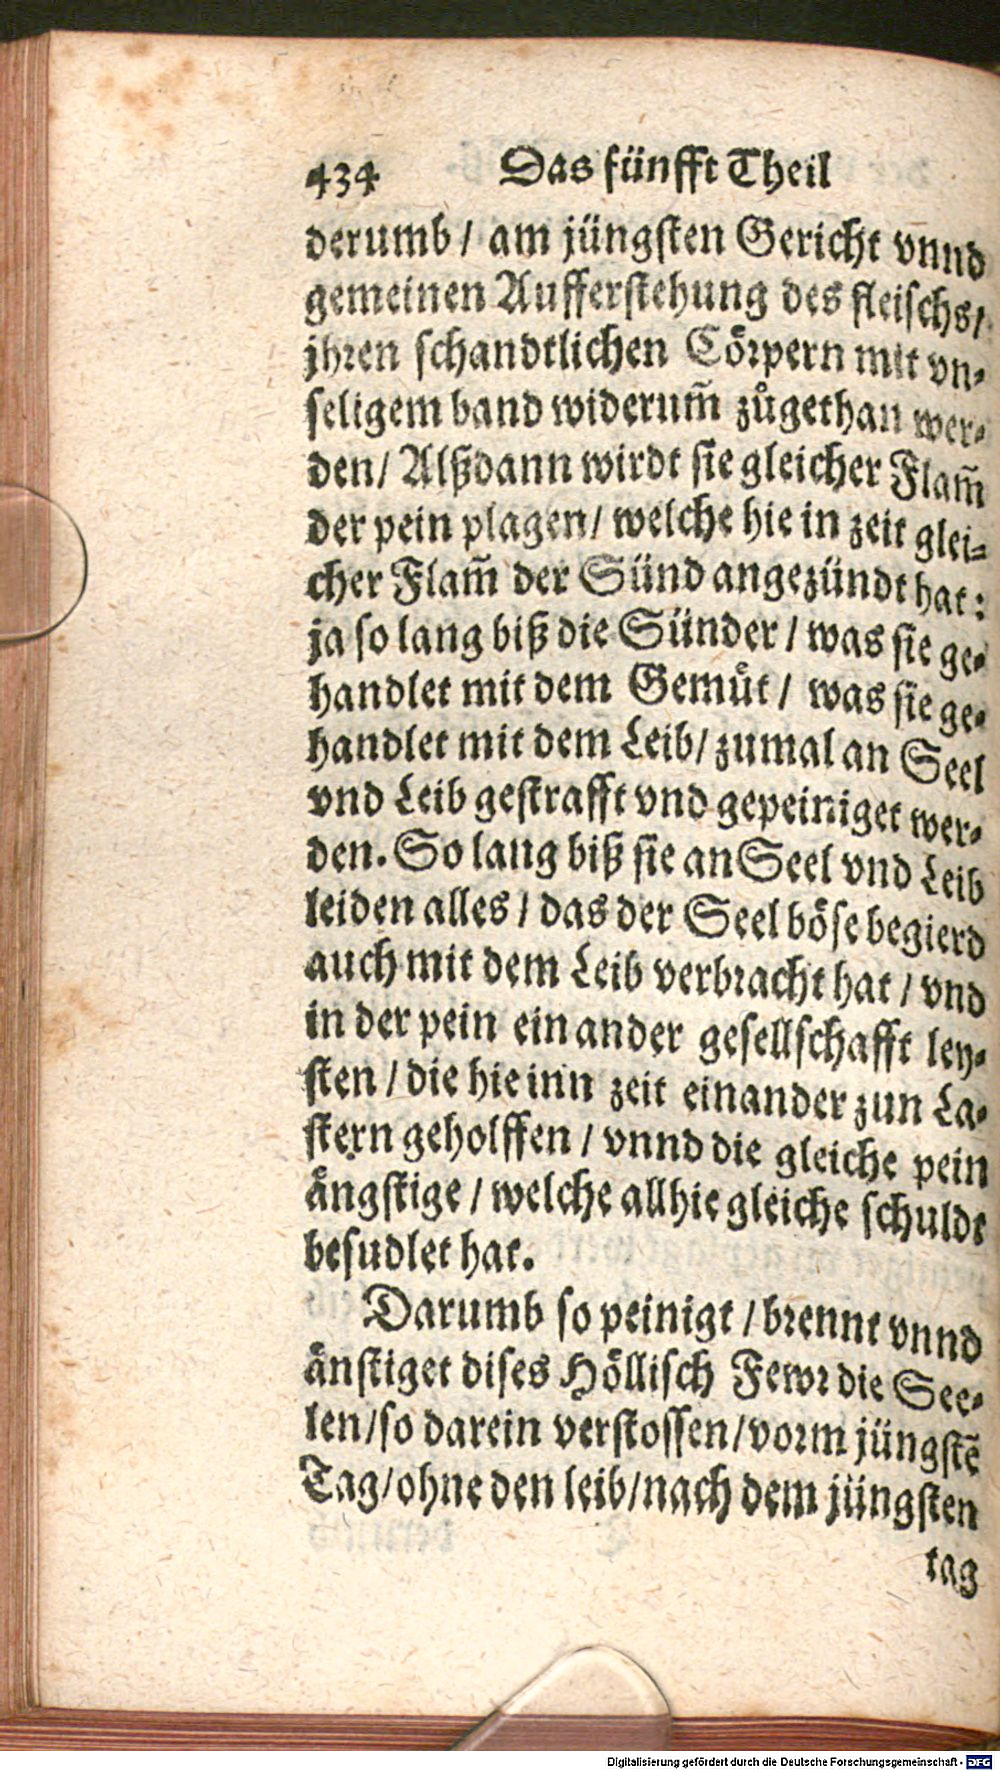 434 Das fünfft Theil
derumb / am jüngsten Gericht vnnd
gemeinen Aufferstehung des fleischs /
jhren schandtlichen Cörpern mit vn⸗
seligem band widerum̃ zůgethan wer⸗
den / Alßdann wirdt sie gleicher Flam̃
der pein plagen / welche hie in zeit glei⸗
cher Flam̃ der Sünd angezündt hat :
ja so lang biß die Sünder / was sie ge⸗
handlet mit dem Gemüt / was sie ge⸗
handlet mit dem Leib / zumal an Seel
vnd Leib gestrafft vnd gepeiniget wer⸗
den. So lang biß sie an Seel vnd Leib
leiden alles / das der Seel böse begierd
auch mit dem Leib verbracht hat / vnd
in der pein ein ander gesellschafft ley⸗
sten / die hie inn zeit einander zun La⸗
stern geholffen / vnnd die gleiche pein
ängstige / welche allhie gleiche schuldt
besudlet hat.
Darumb so peinigt / brennt vnnd
änstiget dises Höllisch Fewr die See⸗
len / so darein verstossen / vorm jüngstẽ
Tag / ohne den leib / nach dem jüngsten
tag
Digitalisierung gefördert durch die Deutsche Forschungsgemeinschaft - DFG